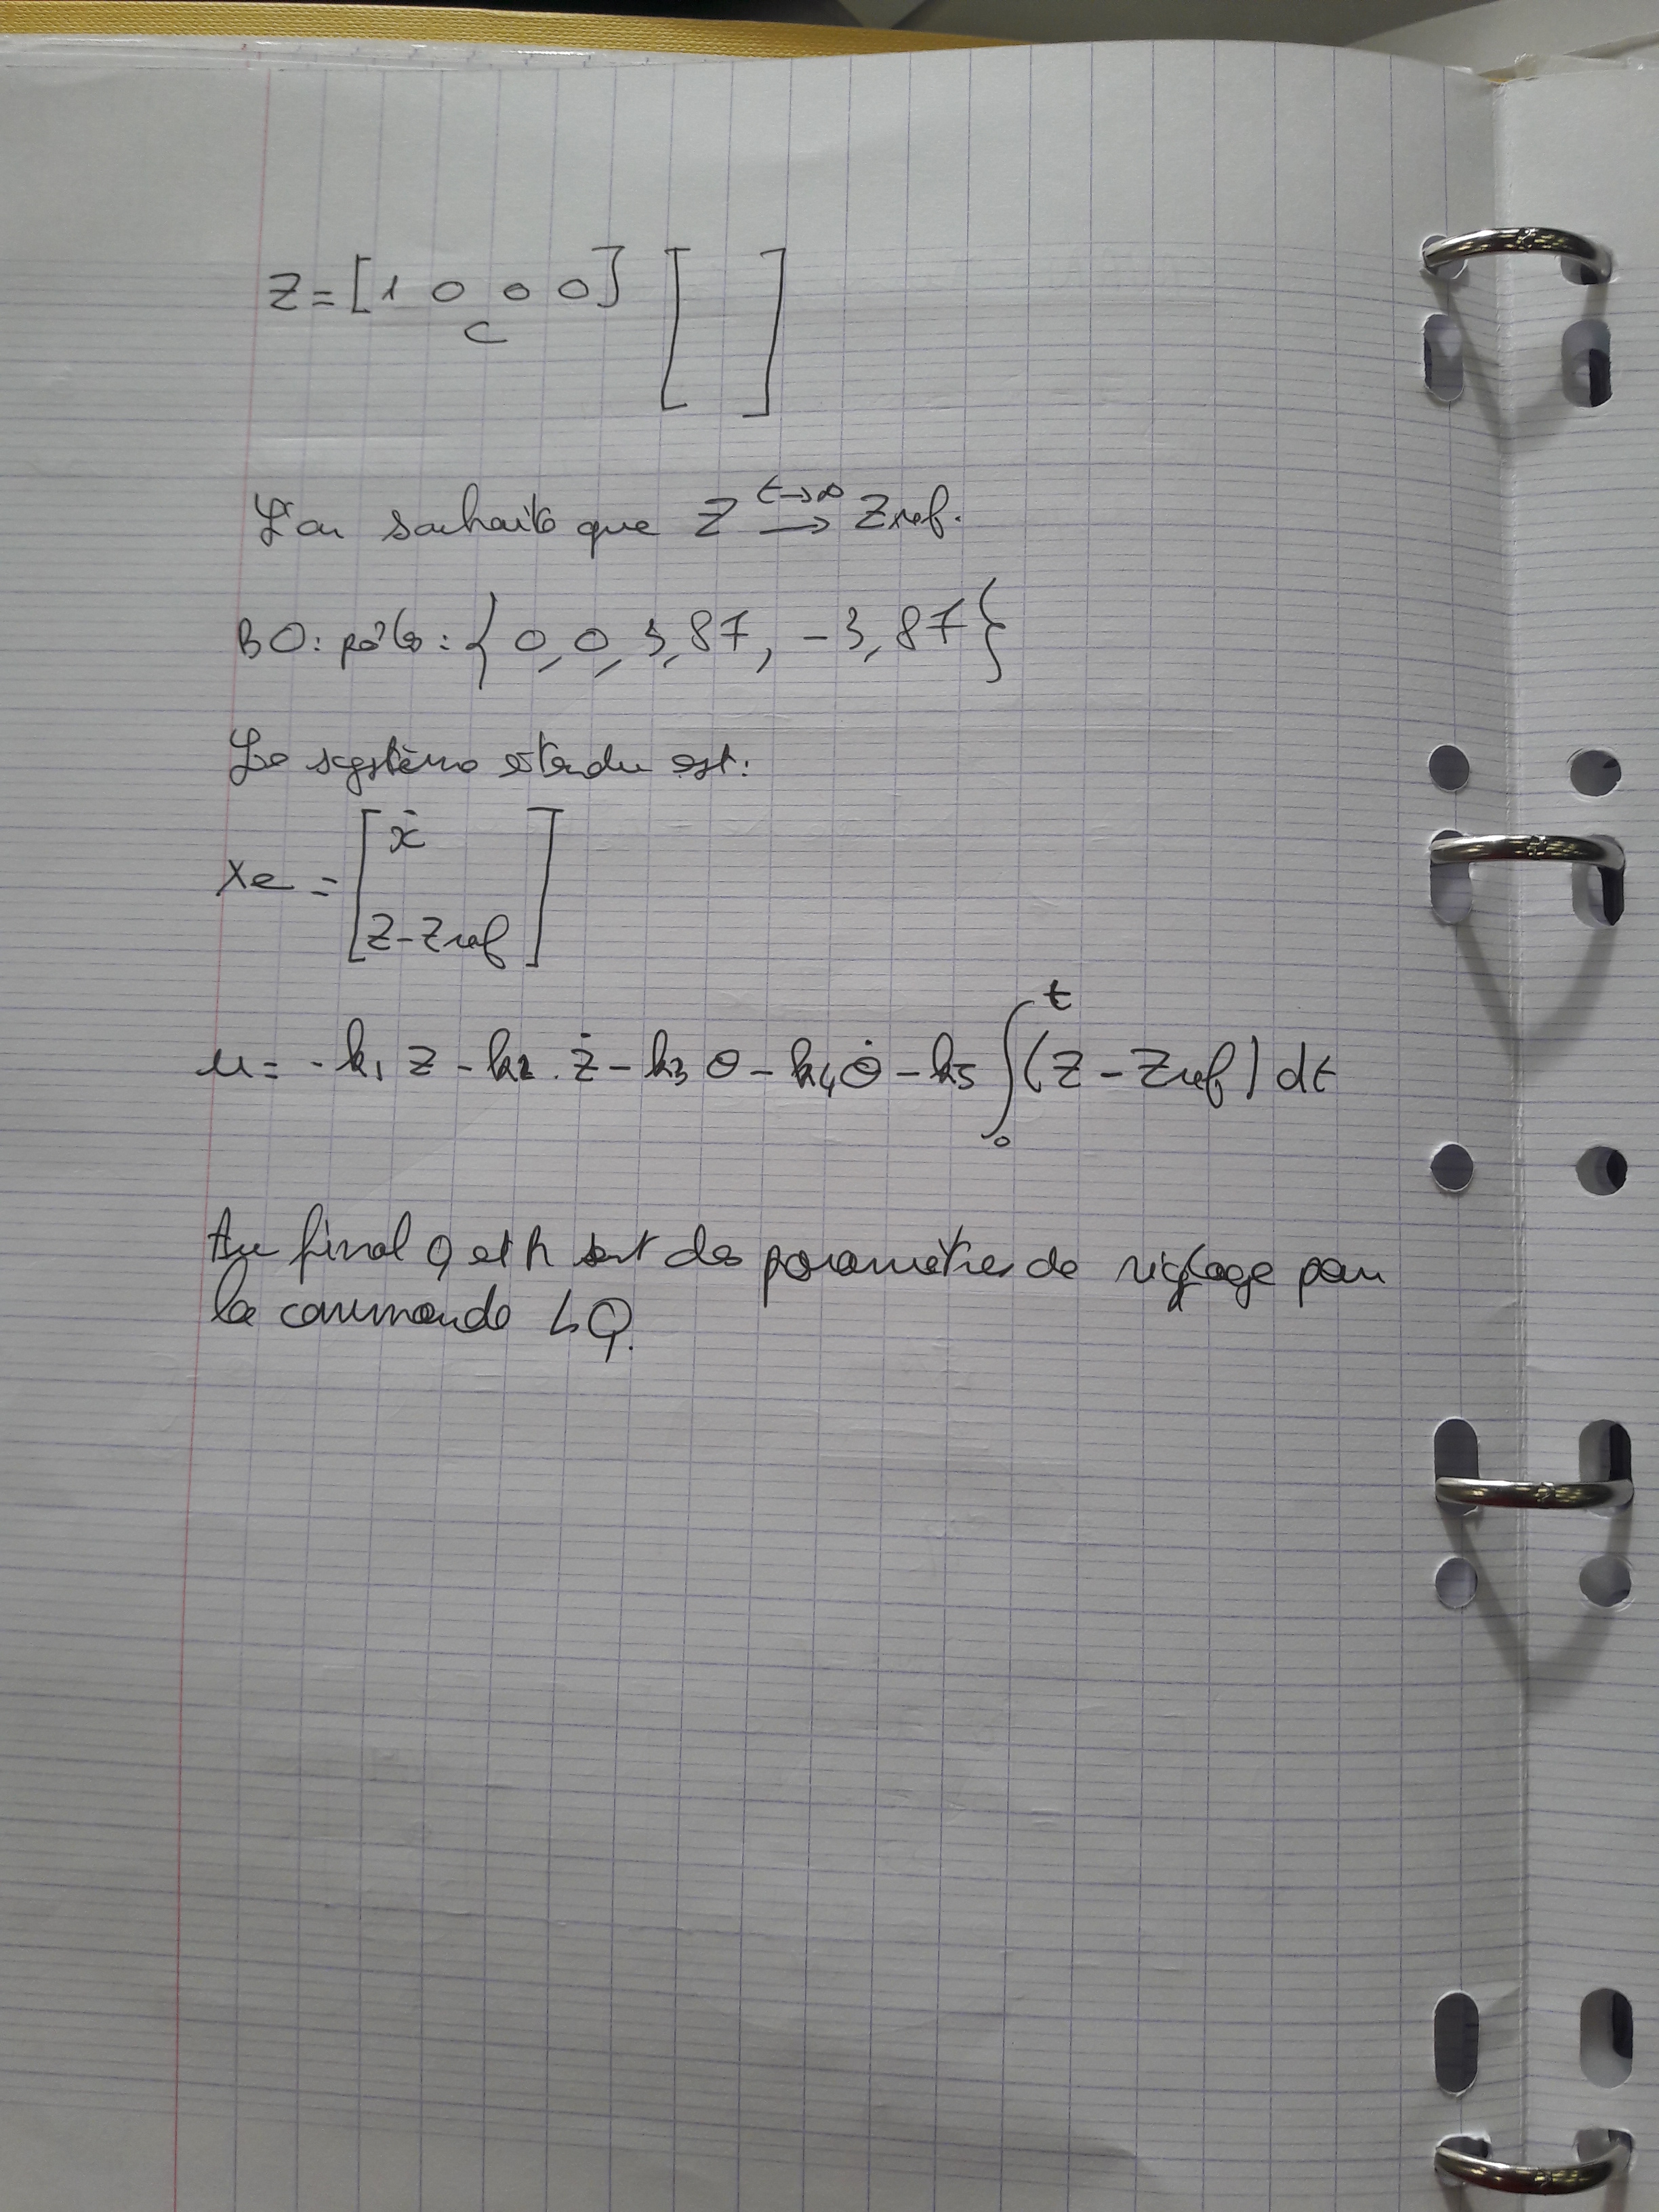 Z = [1 0 0 0] [ ]
C
L'on souhaite que Z →(t→∞) Zref.
BO: pôles: {0, 0, 3,87, -3,87}
Le système étendu est:
Xe = [ẋ
Z-Zref]
u = -k1 z - k2 . ż - k3 θ - k4 θ̇ - k5 ∫₀ᵗ (Z - Zref) dt
Au final Q et R sont des paramètres de réglage pour
la commande LQ.